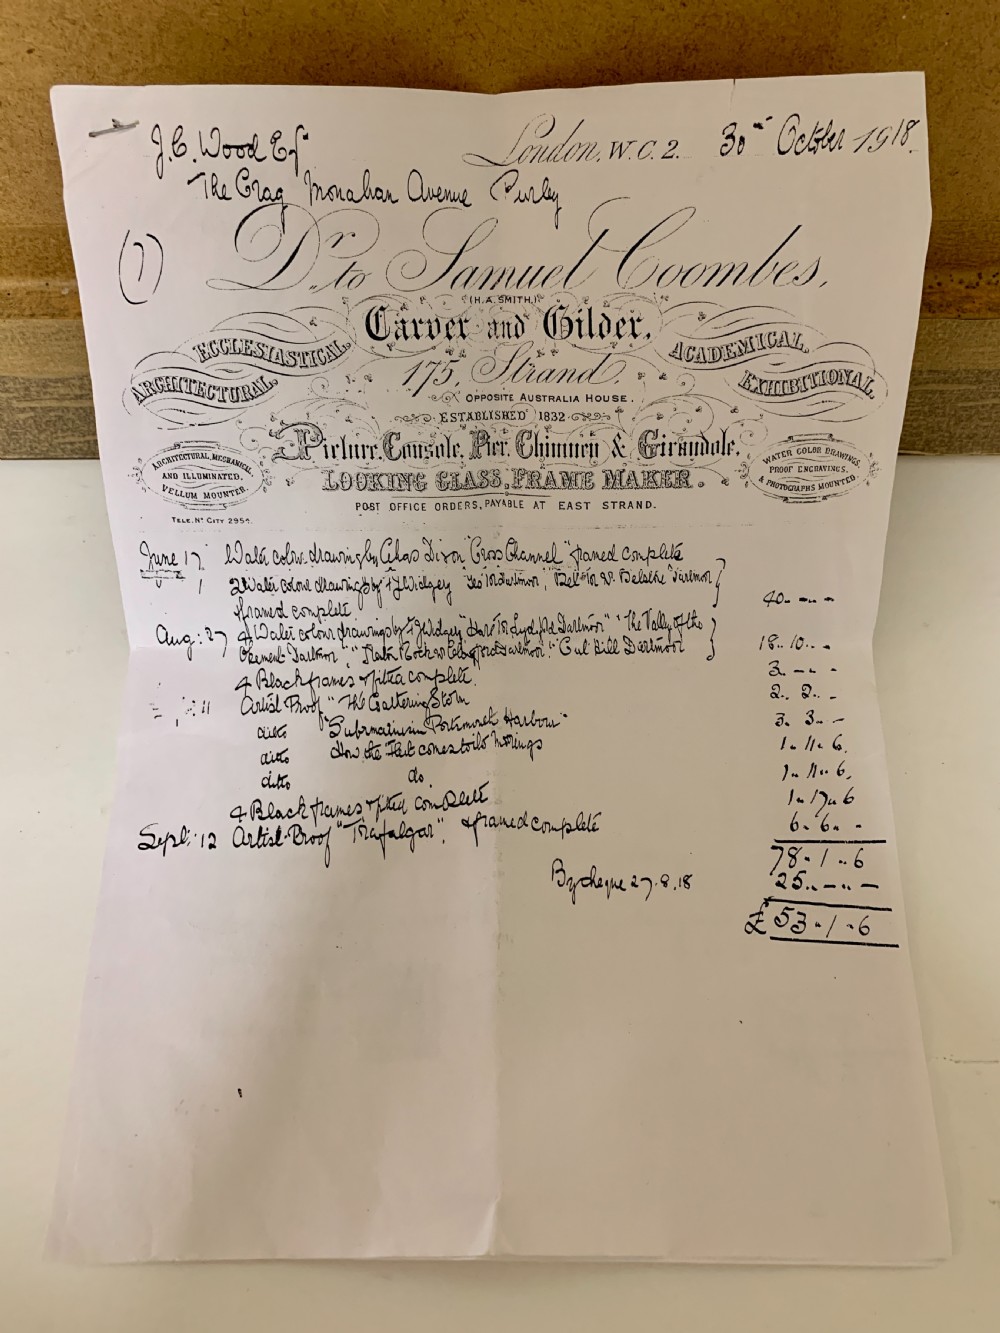 J. C. Wood Esq
London, W.C.2. 30th October 1918.
The Crag Monahan Avenue Purley
(1)
Dr. to Samuel Coombes,
(H.A. SMITH,)
Carver and Gilder,
ECCLESIASTICAL, ARCHITECTURAL,
ACADEMICAL, EXHIBITIONAL,
175, Strand.
OPPOSITE AUSTRALIA HOUSE.
ESTABLISHED 1832
Picture, Console, Pier, Chimney & Girandole,
LOOKING GLASS, FRAME MAKER.
ARCHITECTURAL, MECHANICAL
AND ILLUMINATED,
VELLUM MOUNTER.
WATER COLOR DRAWINGS,
PROOF ENGRAVINGS,
& PHOTOGRAPHS MOUNTED.
TELE. No CITY 2954.
POST OFFICE ORDERS, PAYABLE AT EAST STRAND.
June 17 Water colour drawing by Chas Dixon "Cross Channel" framed complete
2 Water colour drawings by F J Widgery Tor Dartmoor", Dartmoor
framed complete 40 .. - .. -
Aug: 27 4 Water colour drawings by F J Widgery "Hare Tor Lydford Dartmoor" "The Valley of the
Dartmoor", Rock Dartmoor" Hill Dartmoor 18 .. 10 .. -
4 Black frames & fitted complete 3 .. - .. -
" 11 Artist Proof "The Gathering Storm 2 .. 2 .. -
ditto "Submarines in Portsmouth Harbour" 3 .. 3 .. -
ditto How the Fleet comes to its Moorings 1 .. 11 .. 6.
ditto do 1 .. 11 .. 6.
4 Black frames & fitted complete 1 .. 17 .. 6
Sept: 12 Artist Proof "Trafalgar", & framed complete 6 .. 6 .. -
78 .. 1 .. 6
By cheque 27.8.18 25 .. - .. -
£ 53 .. 1 .. 6